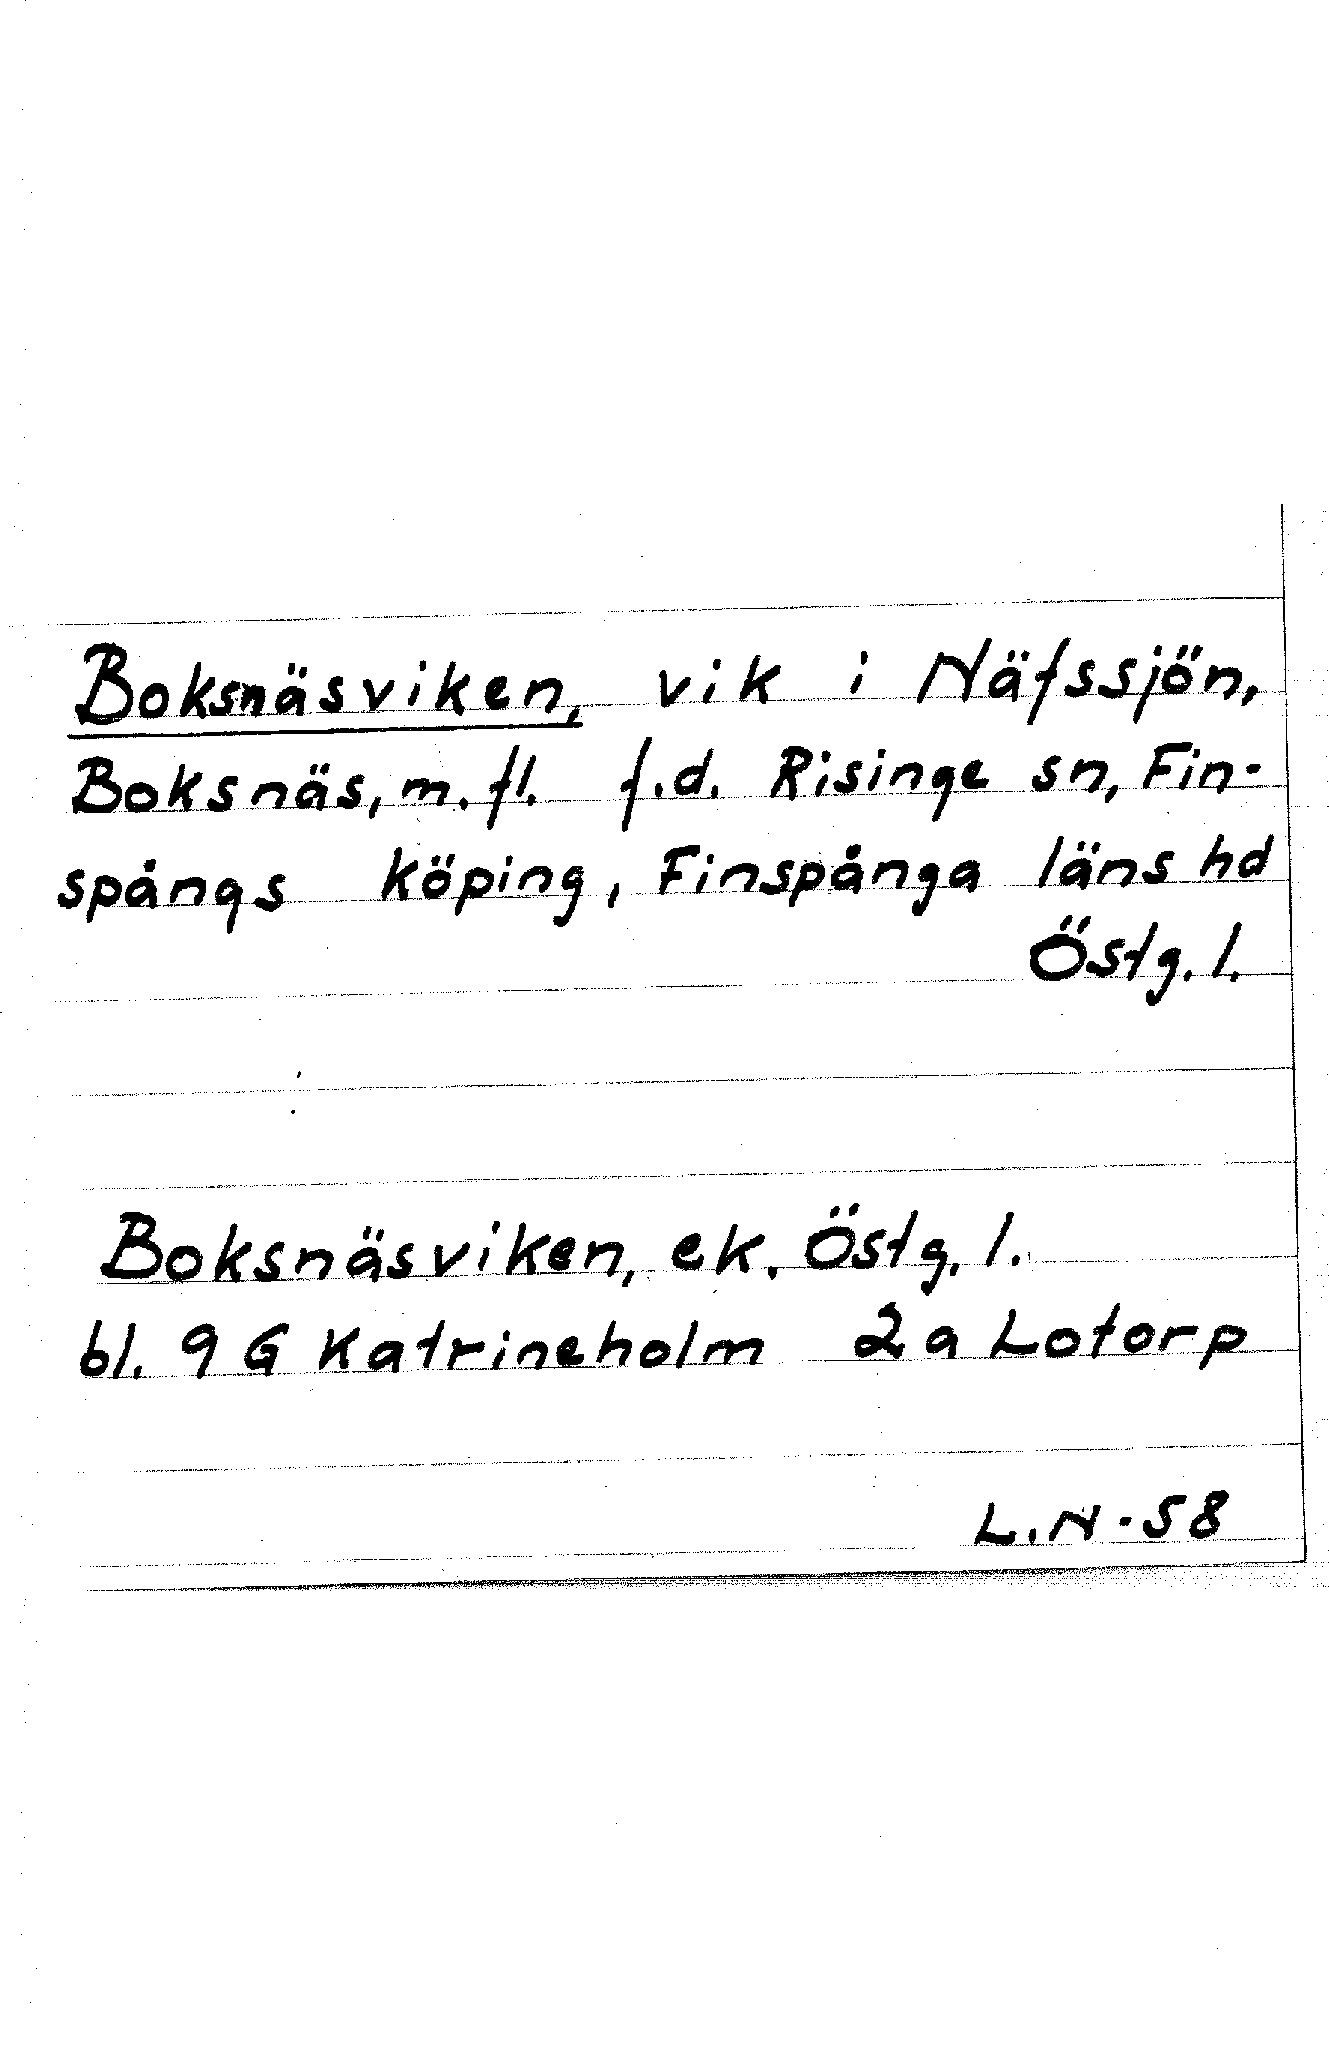 Boksnäsviken, vik i Näfssjön,
Boksnäs, m. fl. f.d. Risinge sn, Fin-
spångs köping, Finspånga läns hd
Östg. l.
Boksnäsviken, ek. Östg. l.
bl. 9 G Katrineholm 2a Lotorp
L.N-58